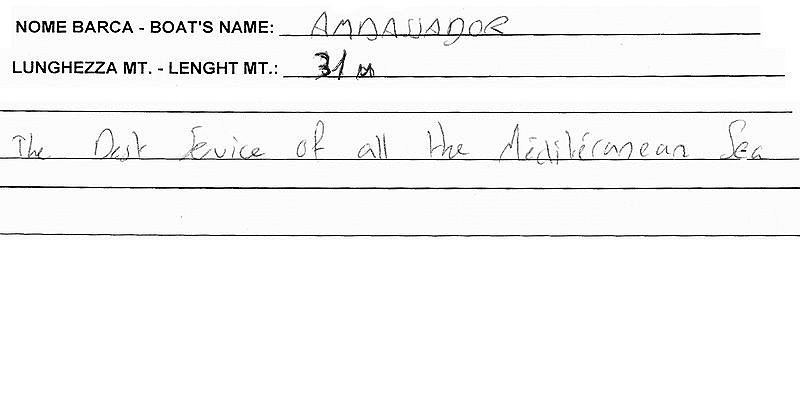 NOME BARCA - BOAT'S NAME: AMBASSADOR
LUNGHEZZA MT. - LENGHT MT.: 31 m
The Best Service of all the Méditéranean Sea